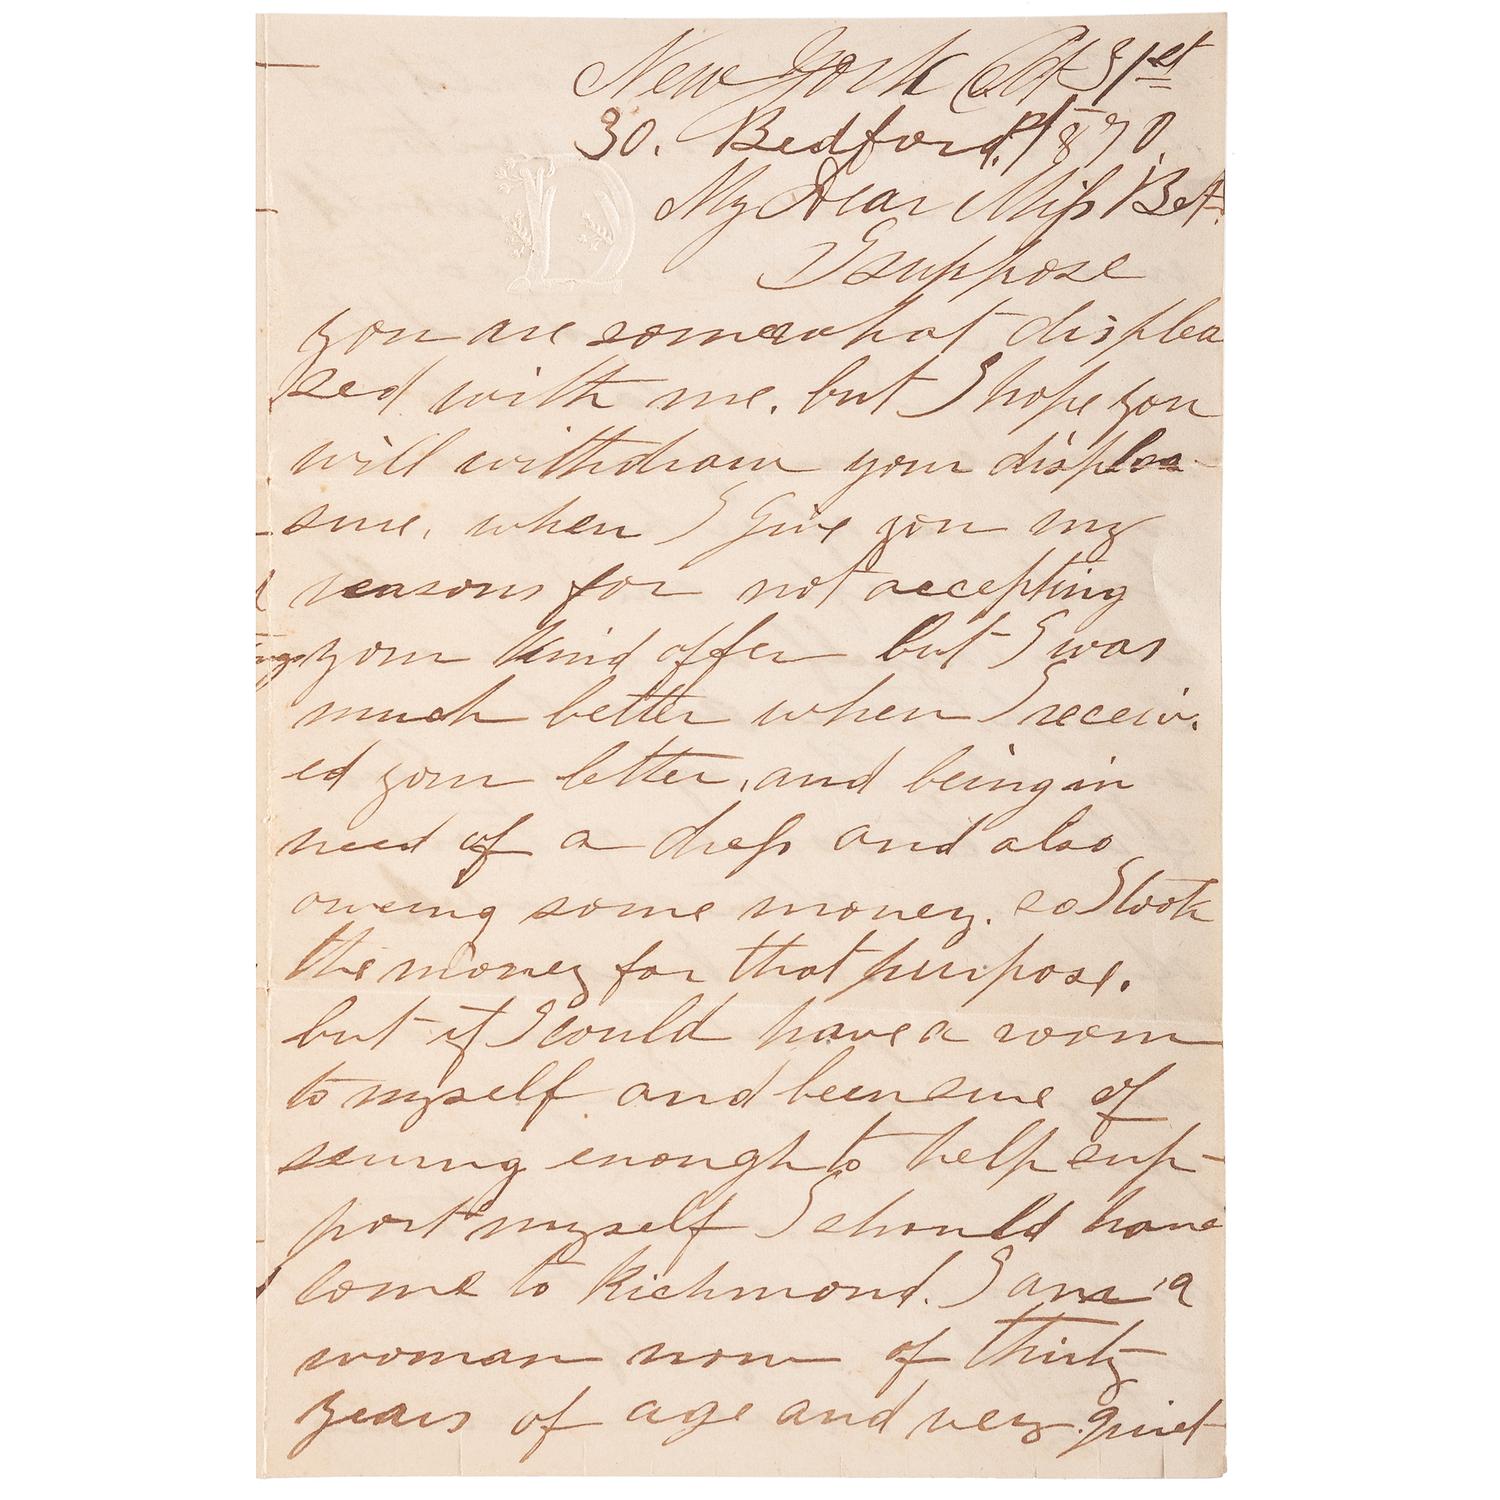 New York Oct 31st
30. Bedford. 1870.
My Dear Miss Bet.
I suppose
you are somewhat displea
sed with me. but I hope you
will withdraw your displea-
sure. when I give you my
reasons for not accepting
your kind offer but I was
much better when I receiv.
ed your letter, and being in
need of a dress and also
oweing some money. so I took
the money for that purpose.
but if I could have a room
to myself and been sure of
sewing enough to help sup-
port myself I should have
come to Richmond. I am a
woman now of thirty
years of age and very quiet
D